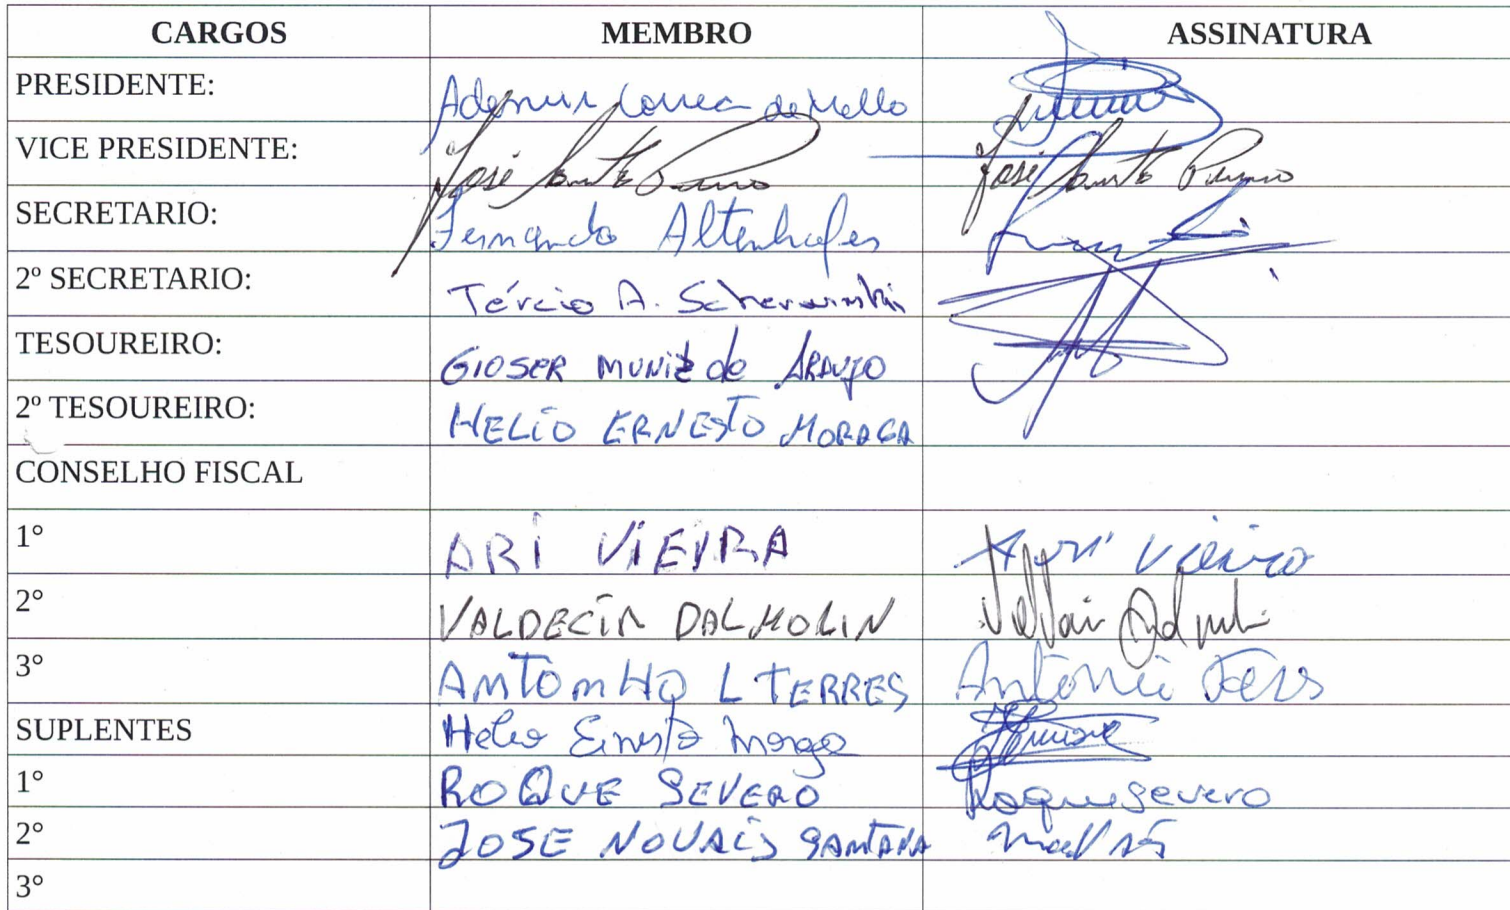 CARGOS MEMBRO ASSINATURA
PRESIDENTE: Ademir Correa de Mello
VICE PRESIDENTE: José José
SECRETARIO: Fernando Altenhofen
2º SECRETARIO: Tércio A.
TESOUREIRO: GIOSER MUNIZ de ARAUJO
2º TESOUREIRO: HELIO ERNESTO MORAGA
CONSELHO FISCAL
1° ARI VIEIRA Ari Vieira
2° VALDECIR DALMOLIN
3° ANTONHO L TERRES Antonio
SUPLENTES Helio Ernesto Moraga
1° ROQUE SEVERO Roque Severo
2° JOSE NOVAIS SANTANA
3°